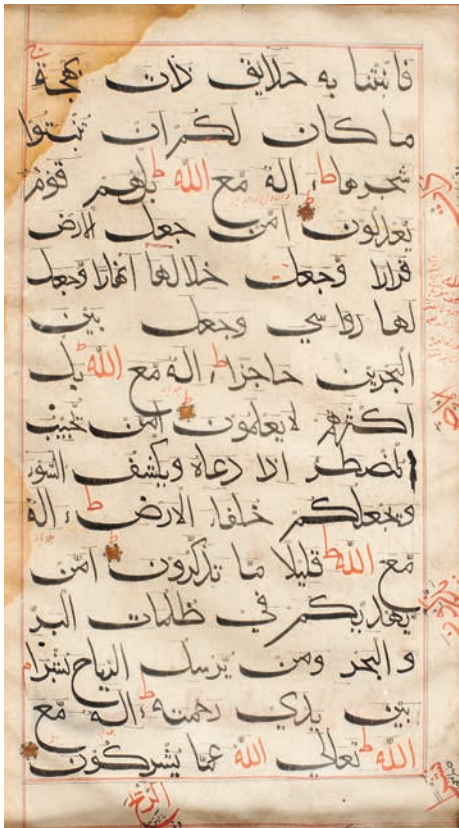 فانبتنا به حدايق ذات بهجة
ما كان لكم ان تنبتوا
شجرها ط ءاله مع الله ط بل هم قوم
يعدلون امن جعل الارض
قرارا وجعل خلالها انهارا وجعل
لها رواسي وجعل بين
البحرين حاجزا ط ءاله مع الله ط بل
اكثرهم لا يعلمون امن يجيب
المضطر اذا دعاه ويكشف السوء
ويجعلكم خلفاء الارض ط ءاله
مع الله ط قليلا ما تذكرون امن
يهديكم في ظلمات البر
و البحر ومن يرسل الرياح بشرا
بين يدي رحمته ط ءاله مع
الله ط تعالى الله عما يشركون